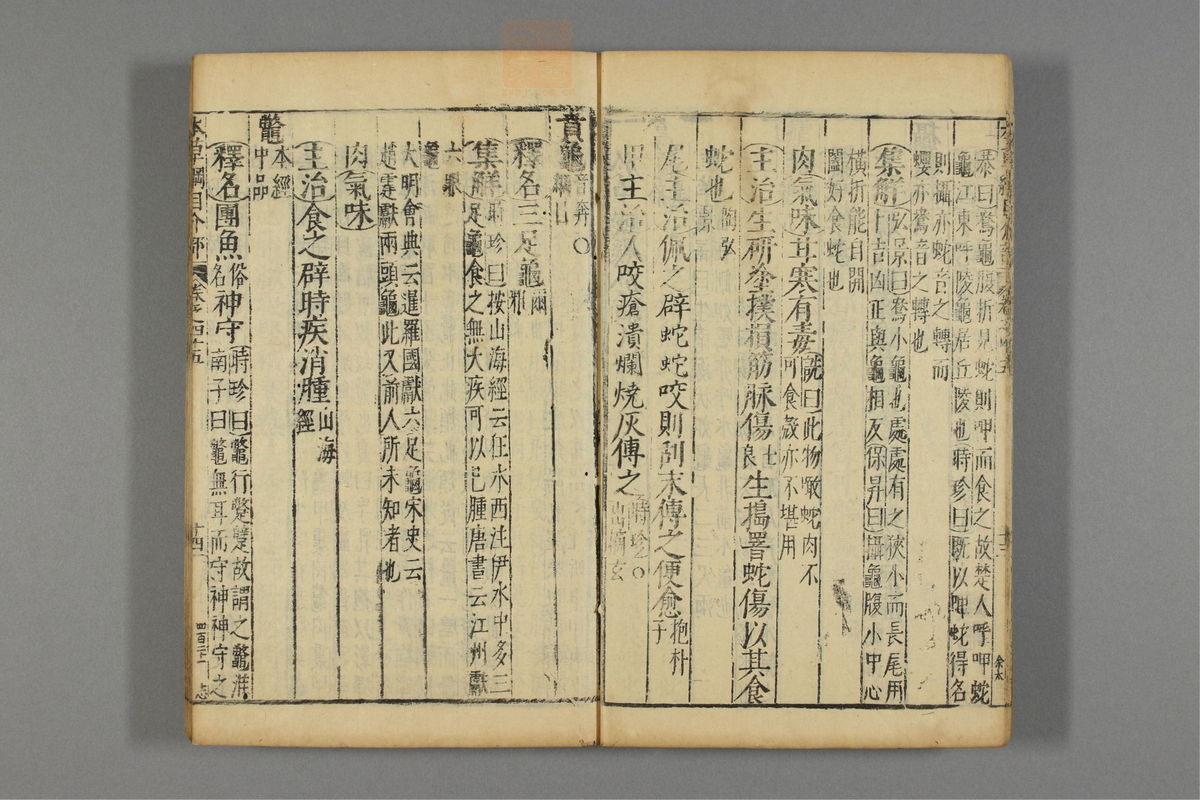 恭曰鴦龜腹折見蛇則呷而食之故楚人呼呷蛇
龜江東呼陵龜居丘陵也時珍曰既以呷蛇得名
則攝亦蛇音之轉而
蠳亦鴦音之轉也
集解弘景曰鴦小龜也處處有之狹小而長尾用
卜吉凶正與龜相反保昇曰攝龜腹小中心
橫折能自開
闔好食蛇也
肉氣味甘寒有毒詵曰此物噉蛇肉不
可食殼亦不堪用
主治生研塗撲損筋脉傷士良生搗署蛇傷以其食
蛇也陶弘景
尾主治佩之辟蛇蛇咬則刮末傅之便愈抱朴子
甲主治人咬瘡潰爛燒灰傅之時珍○
出摘玄
賁龜音奔○
綱目
釋名三足龜爾雅
集解時珍曰按山海經云狂水西注伊水中多三
足龜食之無大疾可以已腫唐書云江州獻
六眼
龜
大明會典云暹羅國獻六足龜宋史云
趙霆獻兩頭龜此又前人所未知者也
肉氣味
主治食之辟時疾消腫山海經
鼈本經
中品
釋名團魚俗名神守時珍曰鼈行蹩躄故謂之鼈淮
南子曰鼈無耳而守神神守之
十四